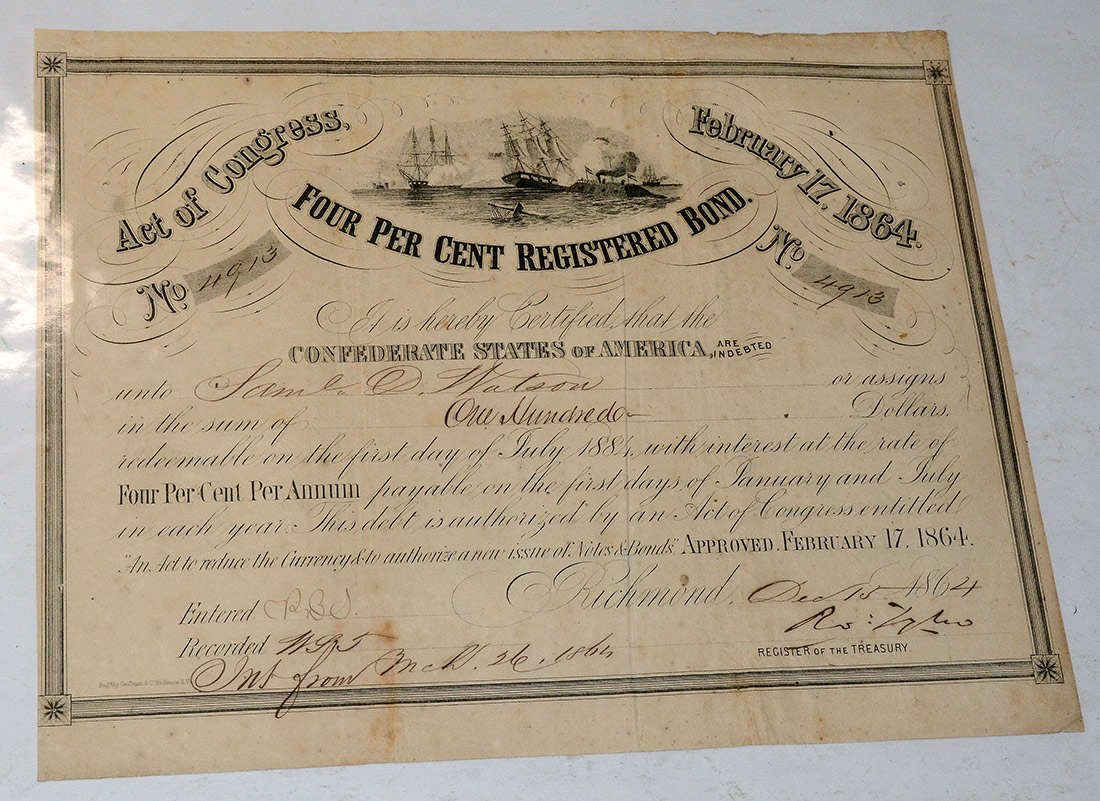 Act of Congress,
February 17, 1864.
FOUR PER CENT REGISTERED BOND.
No 4913
No 4913
It is hereby Certified, that the
CONFEDERATE STATES OF AMERICA, ARE INDEBTED
unto Saml. D. Watson or assigns
in the sum of One Hundred Dollars,
redeemable on the first day of July 1884, with interest at the rate of
Four Per Cent Per Annum payable on the first days of January and July
in each year. This debt is authorized by an Act of Congress entitled
"An Act to reduce the Currency & to authorize a new issue of Notes & Bonds." APPROVED, FEBRUARY 17, 1864.
Richmond, Dec 15 1864
Entered
Ro: Tyler
Recorded
REGISTER OF THE TREASURY.
Int from Mch. 26. 1864